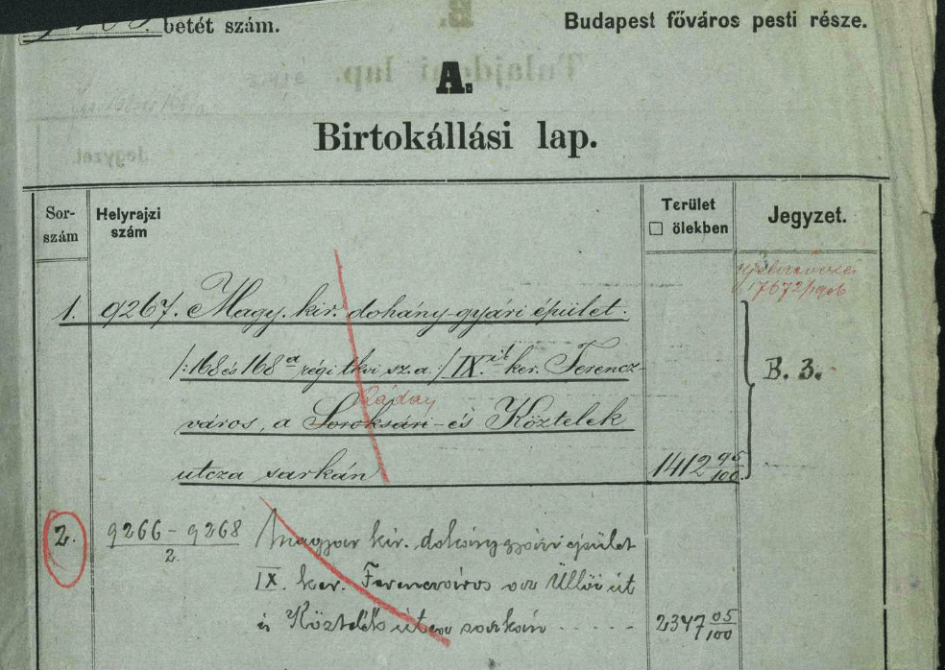 betét szám.
Budapest főváros pesti része.
A.
Birtokállási lap.
Sor-
szám
Helyrajzi
szám
Terület
□ ölekben
Jegyzet.
17672/906
1. 9267. Magy. kir. dohány-gyári épület.
/:168 és 168a régi tkvi sz. a:/ IX.ik ker. Ferencz-
Ráday
város, a Soroksári- és Köztelek
utcza sarkán 1412 95/100
B. 3.
2. 9266-9268/2 Magyar kir. dohánygyári épület
IX. ker. Ferencváros az Üllői út
és Köztelek utca sarkán 2347 05/100